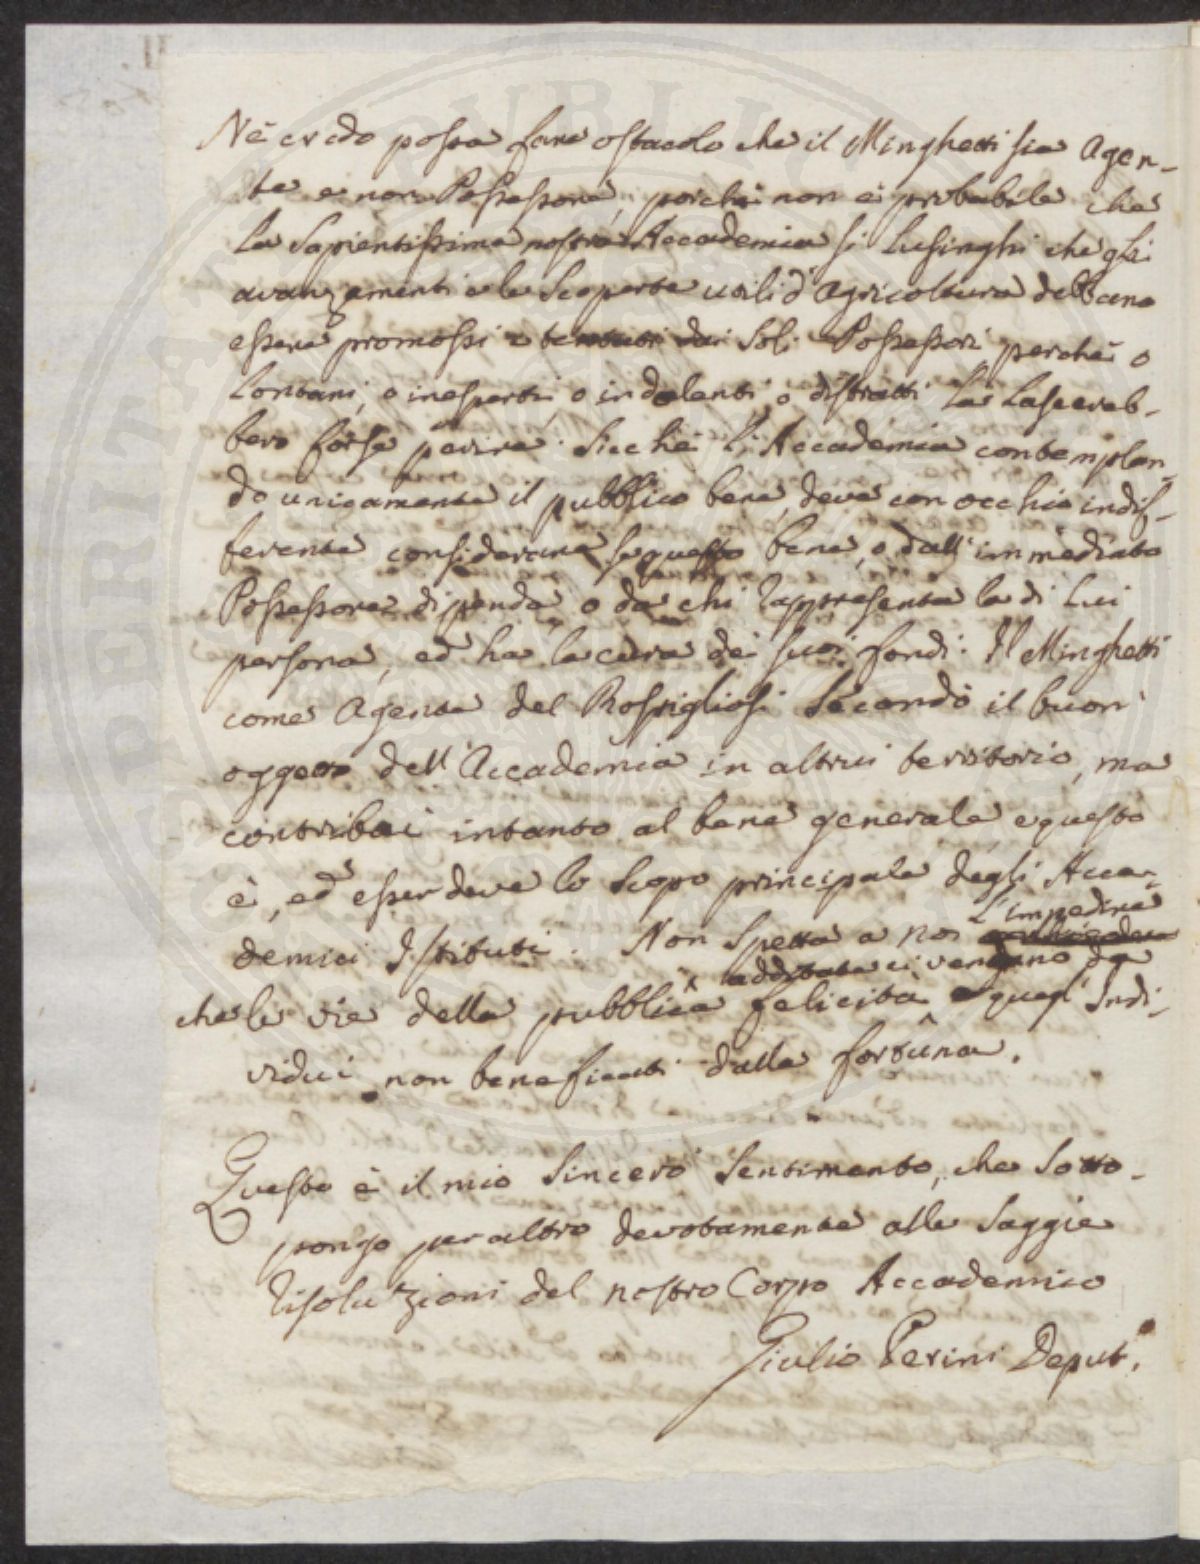 Nè credo possa fare ostacolo che il Minghetti sia Agen-
te e non Possessore, poiché non è probabile che
la Sapientissima nostra Accademia si lusinghi che gli
avanzamenti e le Scoperte utili d'Agricoltura debbano
essere promossi e tentati dai Soli Possessori perché o
lontani, o inesperti, o indolenti, o distratti le lascereb-
bero forse perire. Sicché l'Accademia contemplan-
do unicamente il pubblico bene, deve con occhio indif-
ferente considerare se questo bene, o dall'immediato
Possessore dipenda, o da chi rappresenta la di Lui
persona, ed ha la cura dei suoi fondi. Il Minghetti
come Agente del Rospigliosi Secondò il buon
oggetto dell'Accademia in altrui territorio, ma
contribuì intanto al bene generale, e questo
è, ed esser deve lo Scopo principale degli Acca-
demici Istituti. Non Spetta a noi l'impedire
che le vie della pubblica felicità additate ci vengano da quegl'Indi-
vidui non beneficati dalla fortuna.
Questo è il mio Sincero Sentimento, che Sotto-
pongo per altro devotamente alle Saggie
risoluzioni del nostro Corpo Accademico
Giulio Perini Deput.
PUBLIC
PERITATI